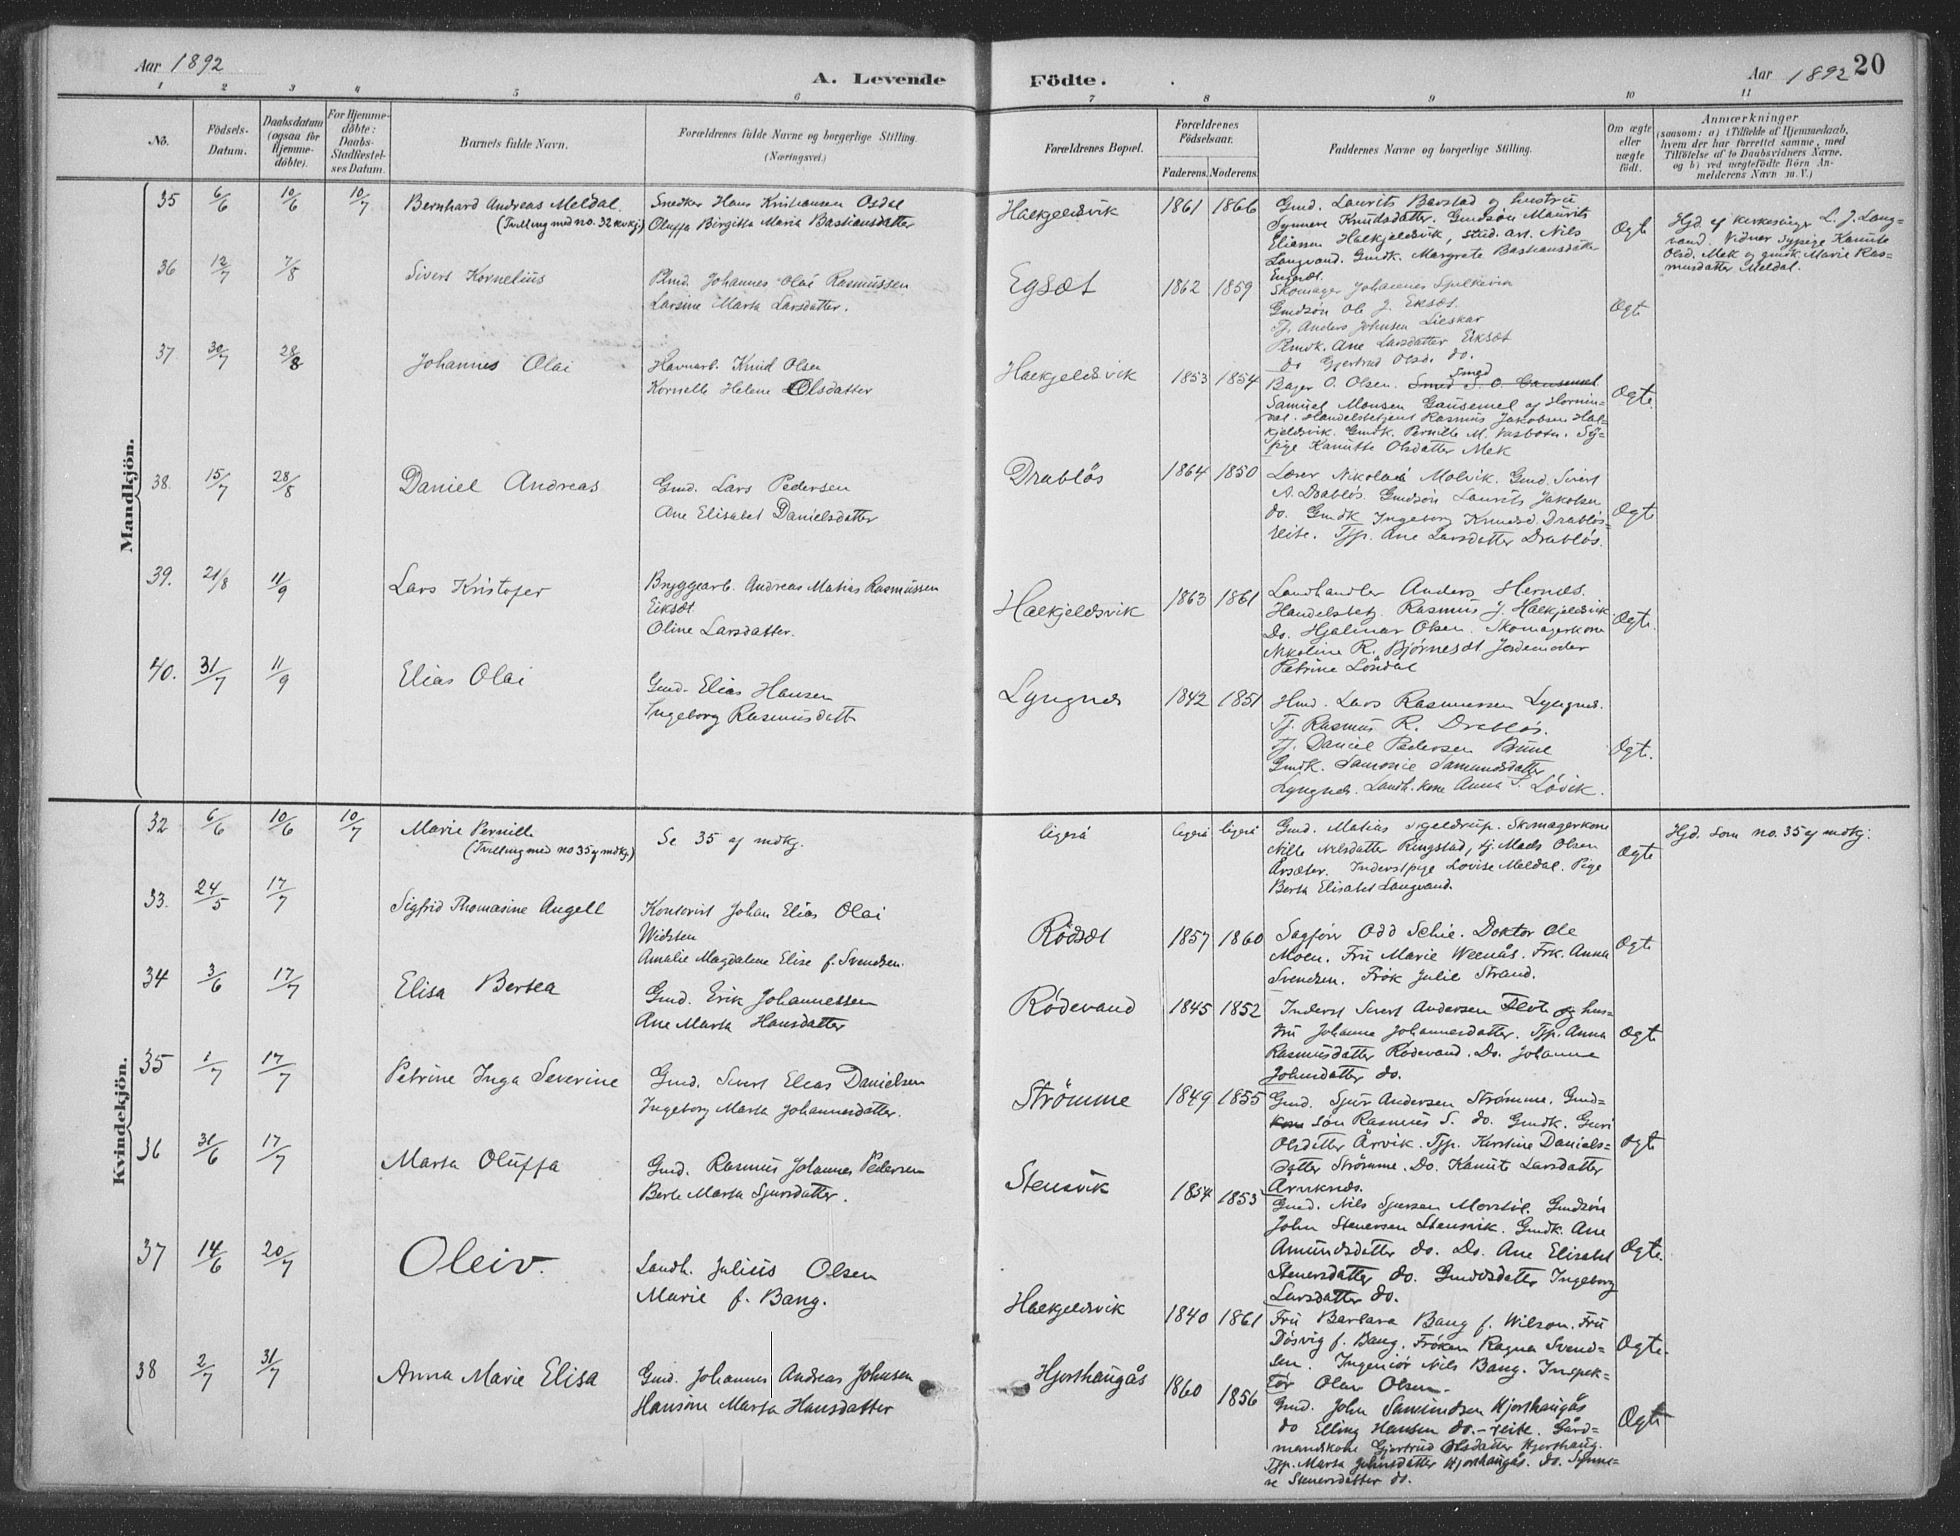 Aar 1892
A. Levende
Födte.
Aar 1892
20
1 2 3 4 5 6 7 8 9 10 11
No.
Födsels-
Datum.
Daabsdatum
(ogsaa for
Hjemme-
döbte).
For Hjemme-
döbte:
Daabs-
Stadfæstel-
ses Datum.
Barnets fulde Navn.
Forældrenes fulde Navne og borgerlige Stilling.
(Næringsvei.)
Forældrenes Bopæl.
Forældrenes
Födselsaar.
Faderens. Moderens.
Faddernes Navne og borgerlige Stilling.
Om ægte
eller
uægte
födt.
Anmærkninger
(saasom: a) i Tilfælde af Hjemmedaab,
hvem der har forrettet samme, med
Tilföielse af to Daabsvidners Navne.
og b) ved uægtefödte Börn An-
melderens Navn m. V.)
Mandkjön.
35 6/6 10/6 10/7 Bernhard Andreas Meldal
(Tvilling med no. 32 kvkj.)
Snedker Hans Kristiansen Osdal
Oluffa Birgitta Maria Bastiansdatter
Halkjeldsvik 1861 1866
Gmd. Laurits Barstad og hustru
Synnøve Knudsdatter. Gmdsön Maurits
Eliasen Halkjeldsvik, stud. art. Nils
Langvand. Gmdk. Margrete Bastiansdatter
Engset.
Ægte
Hjd. af kirkesanger L. J. Lang-
vand. Vidner Sypige Kanute
Olsd. Mek og gmdk. Marie Ras-
musdatter Meldal.
36 12/7 7/8 Sivert Kornelius
Plmd. Johannes Olai Rasmussen
Larsine Marta Larsdatter.
Egsæt 1862 1859
Skomager Johannes Spilkevik
Gmdsön Ole J. Eksæt.
Tj. Anders Johnsen Lieskar
Plmdk. Ane Larsdatter Eiksæt
Do Gjertrud Olsd. do.
Ægte
37. 30/7 28/8 Johannes Olai
Havnarb. Knud Olsen
Kornelle Helene Olsdatter
Halkjeldsvik 1853 1854
Bager O. Olsen. Smed S. O. Gausemel
Smed
Samuel Monsen Gausemel af Hornin-
dal. Handelsbetjent Rasmus Jakobsen Hal-
kjeldsvik. Gmdk. Pernille M. Vasbotn. Sy-
pige Kanutte Olsdatter Mek
Ægte.
38. 15/7 28/8 Daniel Andreas
Gmd. Lars Pedersen
Ane Elisabet Danielsdatter
Drabløs 1864 1850
Lærer Nikolai Molvik. Gmd. Sivert
A. Drabløs. Gmdsön Laurits Jakobsen
do. Gmdk Ingeborg Knudsd. Drabløs-
reite. Tjp. Ane Larsdatter Drabløs.
Ægt
39. 21/8 11/9 Lars Kristofer
Bryggearb. Andreas Matias Rasmussen
Eiksæt
Oline Larsdatter.
Halkjeldsvik 1863 1861
Landhandler Anders Hernes.
Handelsbetj. Rasmus J. Halkjeldsvik.
Do. Hjalmar Olsen. Skomagerkone
Nikoline R. Bjørnesdt Jordemoder
Petrine Lördal
Ægte.
40. 31/7 11/9 Elias Olai
Gmd. Elias Hansen
Ingeborg Rasmusdatt
Lyngnes 1842 1851
Hmd. Lars Rasmussen Lyngnes.
Tj. Rasmus R. Drabløs.
Tj. Daniel Pedersen Bune
Gmdk. Lamonie Samundsdatter
Lyngnes. Landh. kone Anna S. Løvik.
Ægt.
Kvindekjön.
32 6/6 10/6 10/7 Marie Pernille
(Tvilling med no 35 af mdkj.)
Se 35 af mdkj.
ligeså ligeså ligeså
Gmd. Matias Skjeldrup. Skomagerkone
Nille Nilsdatter Ringstad, tj. Mads Olsen
Årsæter. Inderstpige Lovise Meldal. Pige
Berta Elisabet Langvand.
Ægte
Hjd. som no. 35 af mdkj.
33. 24/5 17/7 Sigfrid Thomasine Angell
Kontorist Johan Elias Olai
Widsten
Amalie Magdalene Elise f. Svendsen.
Rödset 1857 1860
Sagförer Odd Schie. Doktor Ole
Moen. Fru Marie Weenås. Frk. Anna
Svendsen. Frøk Julie Strand.
Ægt
34 3/6 17/7 Elisa Bertea
Gmd. Erik Johannessen
Ane Marta Hansdatter
Rödevand 1845 1852
Inderst Sivert Andersen Flote og hus-
tru Johanne Johannesdatter. Tjp. Anna
Rasmusdatter Rödevand. Do. Johanne
Johnsdatter do.
Ægt
35 1/7 17/7 Petrine Inga Severine
Gmd. Sivert Elias Danielsen
Ingeborg Marta Johannesdatter.
Strömme 1849 1855
Gmd. Sjur Andersen Strömme. Gmd-
kone sön Rasmus S. do. Gmdk. Guri
Olsdatter Årvik. Tjp. Kirstine Daniels-
datter Strömme. Do. Kanute Larsdatter
Arviknes.
Ægt
36 31/6 17/7 Marta Oluffa
Gmd. Rasmus Johannes Pedersen
Berte Marta Sjursdatter.
Stensvik 1854 1853
Gmd. Nils Sjursen Morstöl. Gmdsön
John Steversen Stensvik. Gmdk. Ane
Amundsdatter do. Do. Ane Elisabet
Steversdatter do. Gmdsdatter Ingeborg
Larsdatter do.
Ægte.
37 14/6 20/7 Oleiv.
Landh. Julius Olsen
Marie f. Bang.
Halkjeldsvik 1840 1861
Fru Barbara Bang f. Wilson. Fru
Døsvig f. Bang. Frøken Ragna Svend-
sen. Ingeniör Nils Bang. Inspek-
tör Olav Olsen.
Ægte.
38 2/7 31/7 Anna Marie Elisa
Gmd. Johannes Andreas Johnsen
Hansine Marta Hansdatter
Hjorthaugås 1860 1856
Gmd. John Samundsen Hjorthaugås
do Elling Hansen do.-reite. Gård-
mandskone Gjertrud Olsdatter Hjorthaug.
Tjp. Marta Johnsdatter Hjorthaugås. do. Synne-
ve Steversdatter do.
Ægte